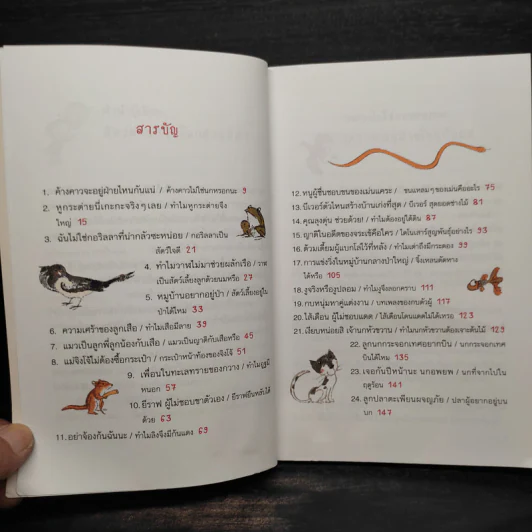 สารบัญ
1. ค้างคาวจะอยู่ฝ่ายไหนกันแน่ / ค้างคาวไม่ใช่นกหรอกนะ 9
2. หูกระต่ายนี่เกะกะจริงๆเลย / ทำไมหูกระต่ายจึง
ใหญ่ 15
3. ฉันไม่ใช่กอริลลาที่น่ากลัวซะหน่อย / กอริลลาเป็น
สัตว์ใจดี 21
4. ทำไมวาฬไม่มาช่วยผลักเรือ / วาฬ
เป็นสัตว์เลี้ยงลูกด้วยนมหรือ 27
5. หมูบ้านอยากอยู่ป่า / สัตว์เลี้ยงอยู่ใน
ป่าได้ไหม 33
6. ความเศร้าของลูกเสือ / ทำไมเสือมีลาย 39
7. แมวเป็นลูกพี่ลูกน้องกับเสือ / แมวเป็นญาติกับเสือหรือ 45
8. แม่จิงโจ้ไม่ต้องซื้อกระเป๋า / กระเป๋าหน้าท้องของจิงโจ้ 51
9. เพื่อนในทะเลทรายของกวาง / ทำไมอูฐมี
หนอก 57
10. ยีราฟ ผู้ไม่ชอบชาตัวเอง / ยีราฟยืนหลับได้
ด้วย 63
11. อย่าจ้องก้นฉันนะ / ทำไมลิงจึงมีก้นแดง 69
12. หนูผู้ชื่นชอบขนของเม่นแคระ / ขนแหลมๆของเม่นคืออะไร 75
13. บีเวอร์ตัวไหนสร้างบ้านเก่งที่สุด / บีเวอร์ สุดยอดช่างไม้ 81
14. คุณลุงตุ่น ช่วยด้วย! / ทำไมต้องอยู่ใต้ดิน 87
15. ญาติในอดีตของจระเข้คือใคร / ไดโนเสาร์สูญพันธุ์อย่างไร 93
16. ด้วงเตี้ยมผู้แบกโลไว้ที่หลัง / ทำไมเต่าถึงมีกระดอง 99
17. การแข่งวิ่งในหมู่บ้านกลางป่าใหญ่ / จิ้งเหลนตัดหาง
ได้หรือ 105
18. งูจริงหรืองูปลอม / ทำไมงูจึงลอกคราบ 111
19. กบหนุ่มหาคู่แต่งงาน / บทเพลงของกบตัวผู้ 117
20. ไส้เดือน ผู้ไม่ชอบแดด / ไส้เดือนโดนแดดไม่ได้เหรอ 123
21. เงียบหน่อยสิ เจ้านกหัวขวาน / ทำไมนกหัวขวานต้องเจาะต้นไม้ 129
22. ลูกนกกระจอกเทศอยากบิน / นกกระจอกเทศ
บินได้ไหม 135
23. เจอกันปีหน้านะ นกอพยพ / นกที่จากไปใน
ฤดูร้อน 141
24. ลูกปลาตะเพียนผจญภัย / ปลาผู้อยากอยู่บน
บก 147